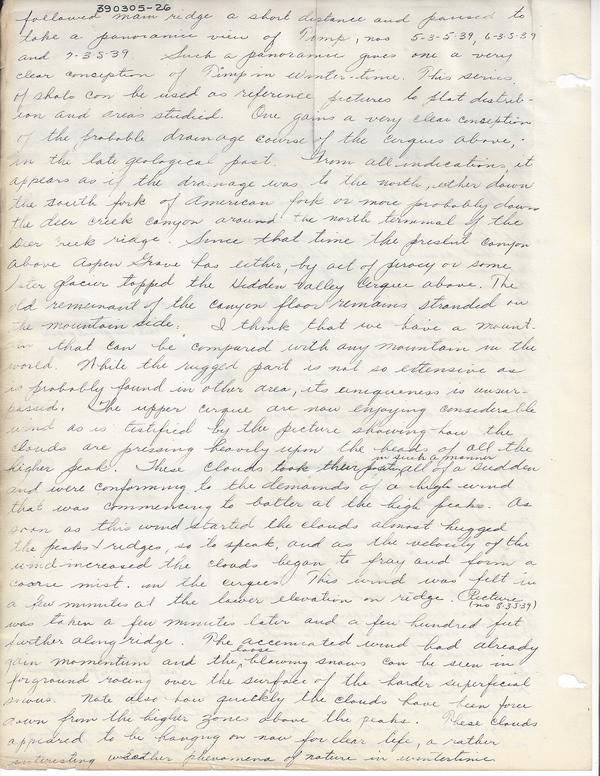 390305-26
followed main ridge a short distance and paused to
take a panoramic view of Timp, nos 5-3-5-39, 6-3-5-39
and 7-3-5-39. Such a panoramic gives one a very
clear conseption of Timp in winter-time. This series
of shots can be used as reference pictures to plat distrib-
ion and areas studied. One gains a very clear conception
of the probable drainage course of the cirques above,
in the late geological past. From all indications, it
appears as if the drainage was to the north, either down
the south fork of American fork or more probably down
the deer creek canyon around the north terminal of the
Deer Creek ridge. Since that time the present canyon
above Aspen Grove has either, by act of piracy or some
later glacier tapped the Hidden Valley Cirque above. The
old remeinant of the canyon floor remains stranded on
the mountain side. I think that we have a mount-
in that can be compared with any mountain in the
world. While the rugged part is not so extensive as
is probably found in other area, its uniqueness is unsur-
passed. The upper cirque are now enjoying considerable
wind as is testified by the picture showing how the
clouds are pressing heavily upon the heads of all the
higher peak. These clouds took their posts in such a manner all of a sudden
and were conforming to the demands of a high wind
that was commencing to batter at the high peaks. As
soon as this wind started the clouds almost hugged
the peaks & ridges, so to speak, and as the velocity of the
wind increased the clouds began to fray and form a
coarse mist. in the cirques. This wind was felt in
a few minutes at the lower elevation on ridge. Picture
(no 8-3-5-39)
was taken a few minutes later and a few hundred feet
further along ridge. The accentuated wind had already
gain momentum and the loose blowing snows can be seen in
forground racing over the surface of the harder superficial
snows. Note also how quickly the clouds have been force
down from the higher zones above the peaks. These clouds
appeared to be hanging on now for dear life, a rather
interesting weather phenomena of nature in wintertime.